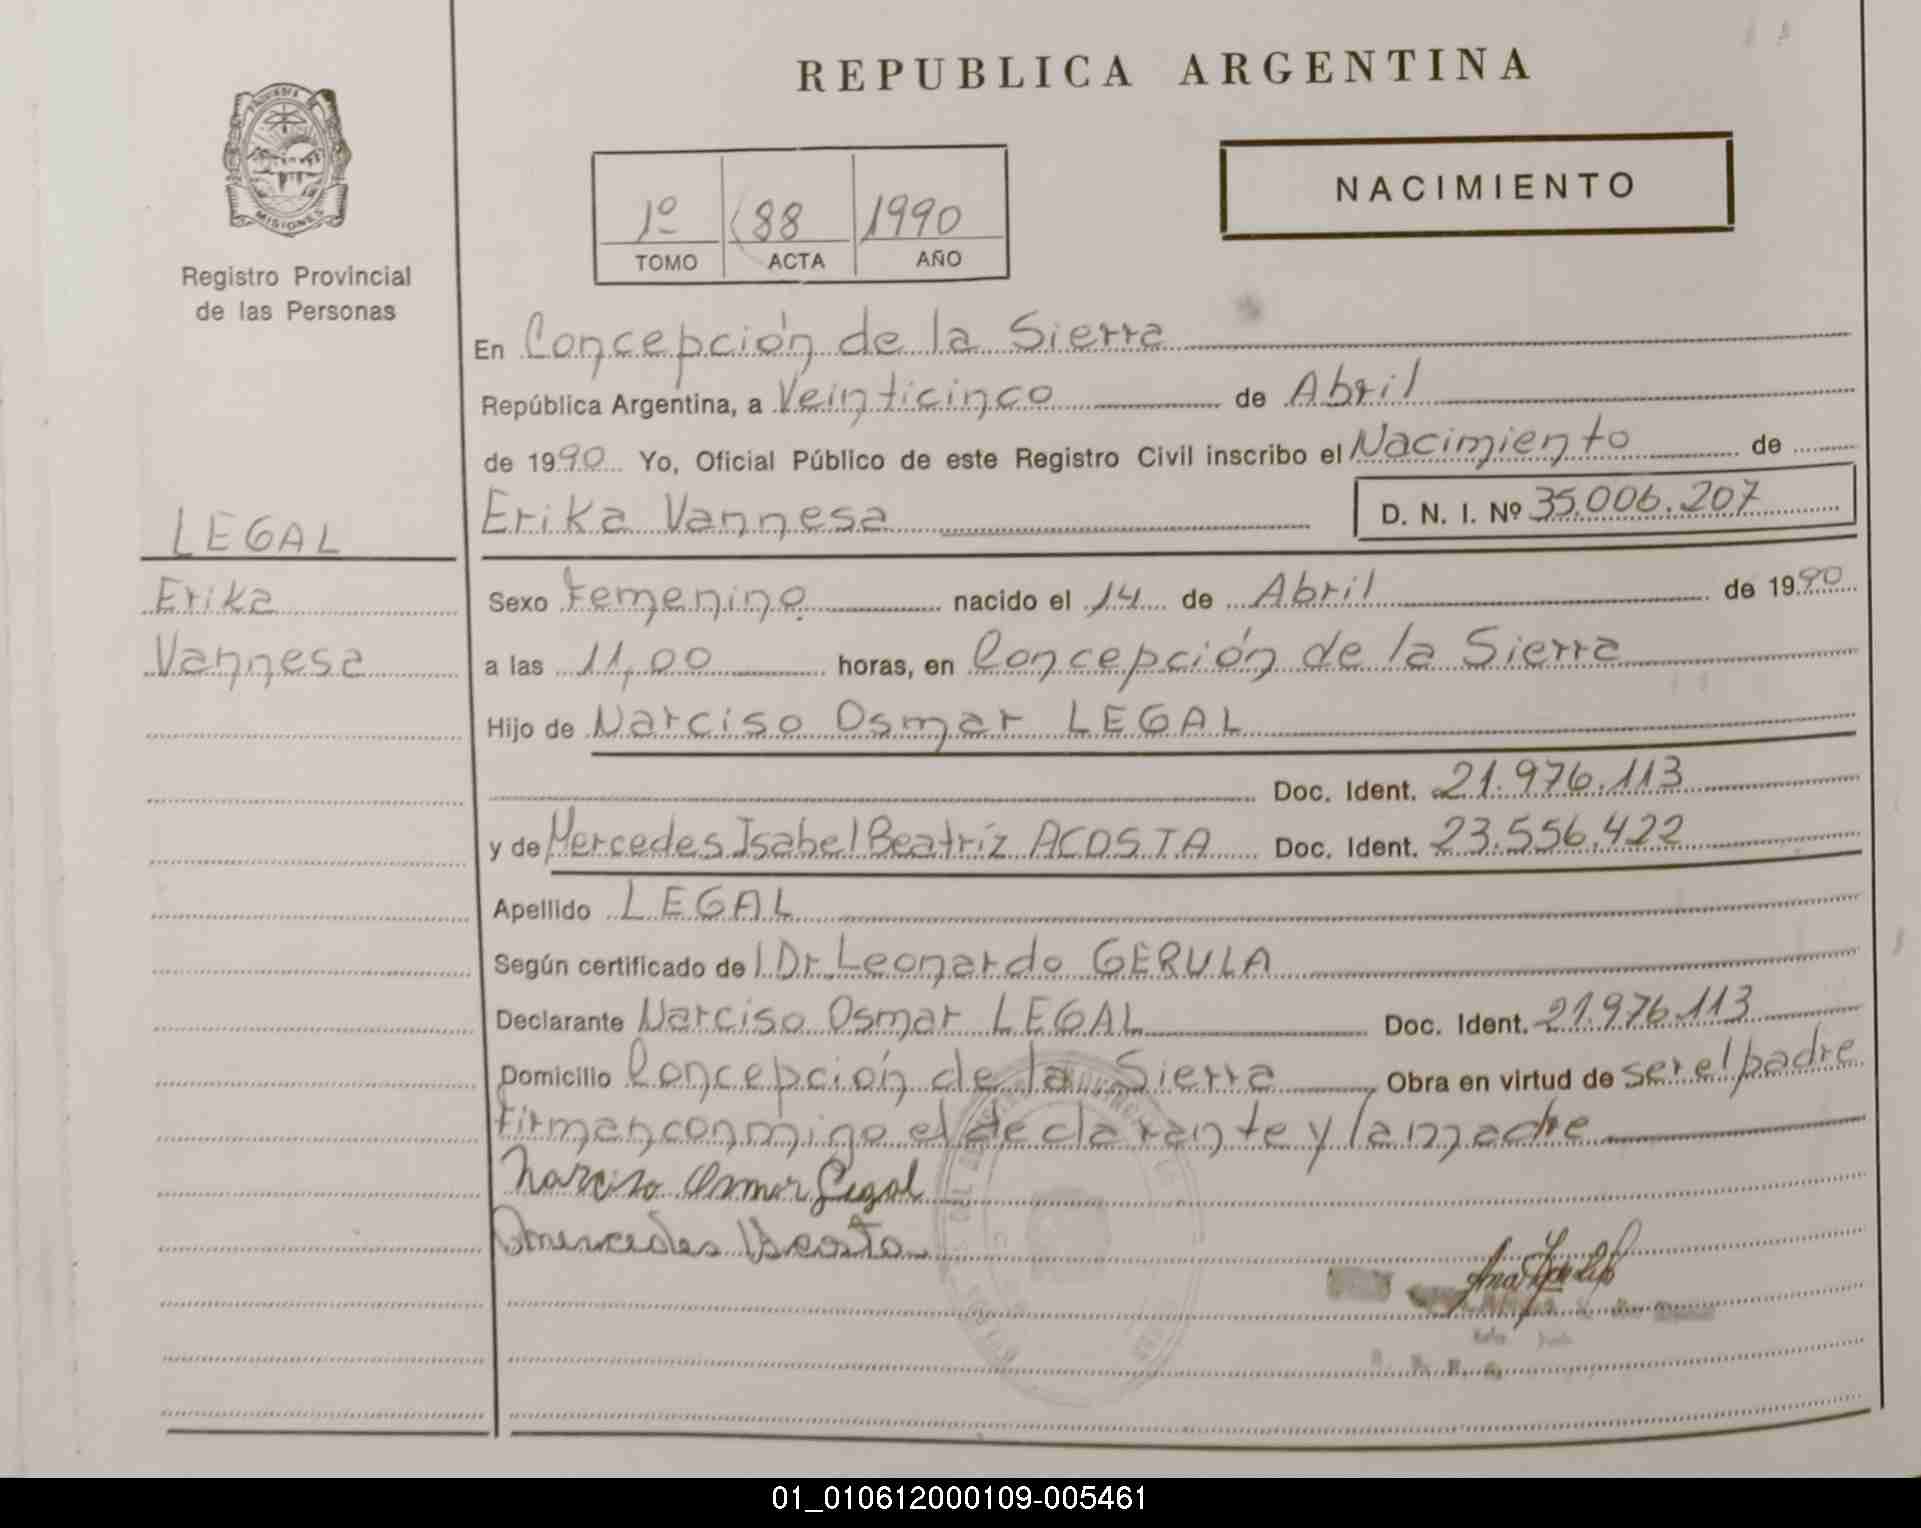 REPUBLICA ARGENTINA
PROVINCIA DE
MISIONES
Registro Provincial
de las Personas
1º 88 1990
TOMO ACTA AÑO
NACIMIENTO
En Concepción de la Sierra
República Argentina, a Veinticinco de Abril
de 1990 Yo, Oficial Público de este Registro Civil inscribo el Nacimiento de
Erika Vannesa D. N. I. Nº 35.006.207
LEGAL
Erika
Vannesa
Sexo Femenino nacido el 14 de Abril de 1990
a las 11,00 horas, en Concepción de la Sierra
Hijo de Narciso Osmar LEGAL
Doc. Ident. 21.976.113
y de Mercedes Isabel Beatríz ACOSTA Doc. Ident. 23.556.422
Apellido LEGAL
Según certificado del Dr. Leonardo GERULA
Declarante Narciso Osmar LEGAL Doc. Ident. 21.976.113
Domicilio Concepción de la Sierra Obra en virtud de ser el padre
Firman conmigo el declarante y la madre
Narciso Osmar Legal
Mercedes Acosta
01_010612000109-005461